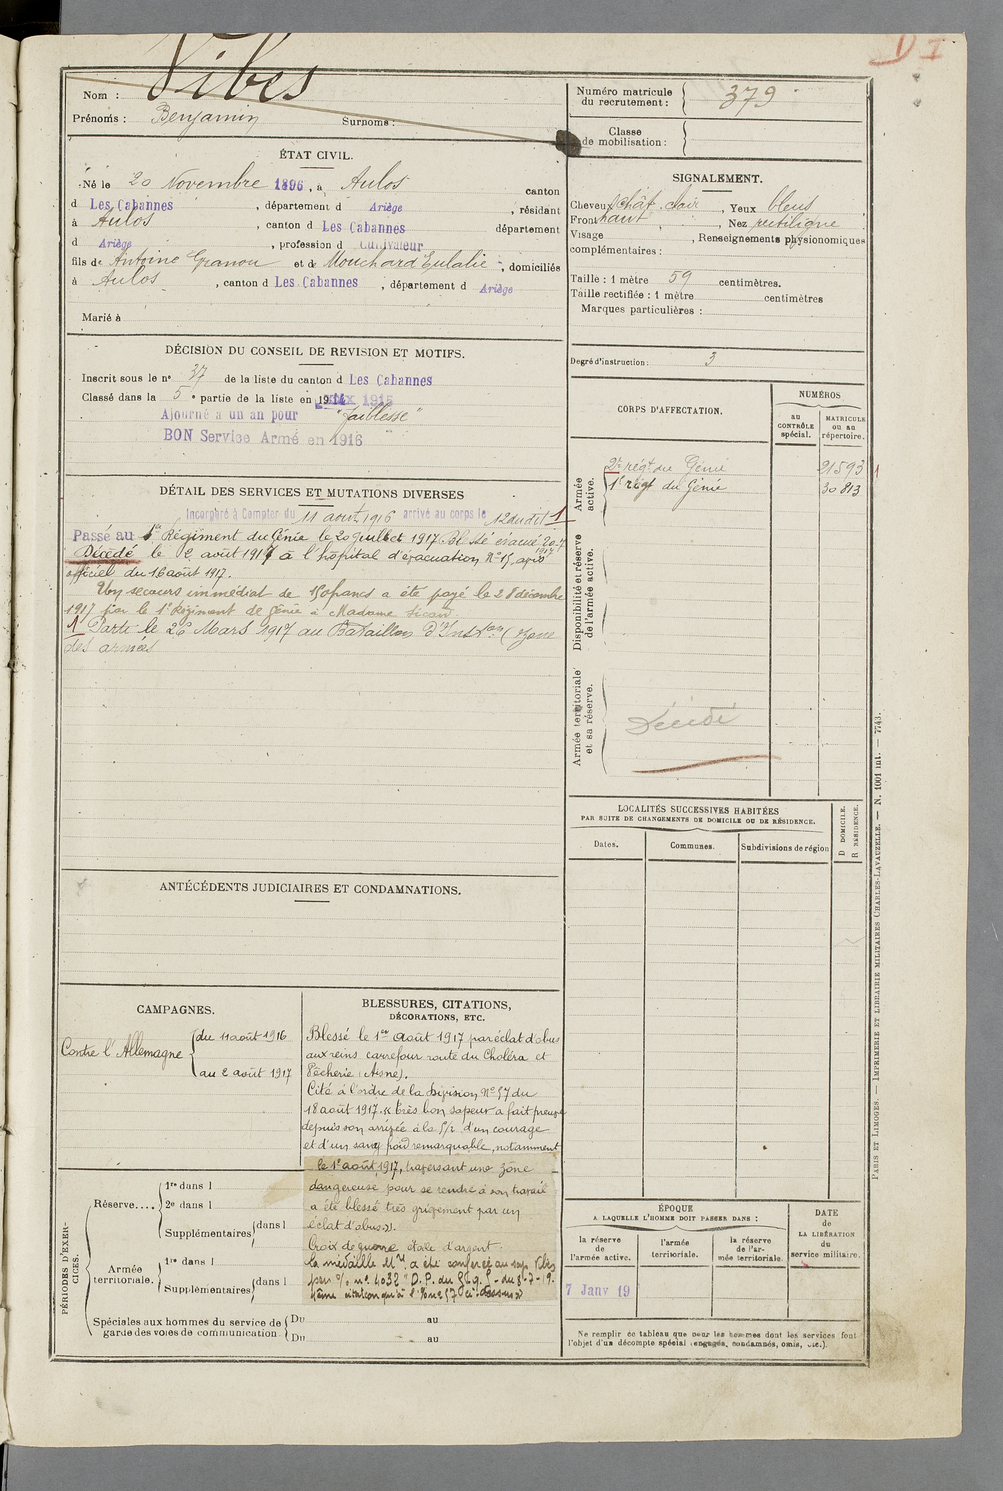 D I
Nom : Vibes
Prénoms : Benjamin Surnoms :
Numéro matricule du recrutement : 379
Classe de mobilisation :
ÉTAT CIVIL.
Né le 20 Novembre 1896, à Aulos canton
d Les Cabannes, département d Ariège, résidant
à Aulos, canton d Les Cabannes département
d Ariège, profession d Cultivateur
fils de Antoine Granou et de Mouchard Eulalie, domiciliés
à Aulos, canton d Les Cabannes, département d Ariège
Marié à
SIGNALEMENT.
Cheveux chât. clair, Yeux bleus
Front haut, Nez rectiligne
Visage , Renseignements physionomiques
complémentaires :
Taille : 1 mètre 59 centimètres.
Taille rectifiée : 1 mètre centimètres
Marques particulières :
Degré d'instruction : 3
DÉCISION DU CONSEIL DE REVISION ET MOTIFS.
Inscrit sous le n° 37 de la liste du canton d Les Cabannes
Classé dans la 5e partie de la liste en 1915
Ajourné à un an pour "faiblesse"
BON Service Armé en 1916
CORPS D'AFFECTATION.
NUMÉROS
au CONTRÔLE spécial.
MATRICULE ou au répertoire.
Armée active.
2e régt du Génie 21593
1er régt du Génie 30813
Disponibilité et réserve de l'armée active.
Armée territoriale et sa réserve.
Décédé
DÉTAIL DES SERVICES ET MUTATIONS DIVERSES
Incorporé à Compter du 11 août 1916 arrivé au corps le 12 dudit 1
Passé au 1er Régiment du Génie le 20 Juillet 1917. Blessé évacué
Décédé le 2 août 1917 à l'hôpital d'évacuation N° 15, avis
officiel du 16 août 1917.
Un secours immédiat de 150 francs a été payé le 28 décembre
1917 par le 1er Régiment de Génie à Madame
1 Parti le 26 Mars 1917 au Bataillon d'Instron (zone
des armées
LOCALITÉS SUCCESSIVES HABITÉES
PAR SUITE DE CHANGEMENTS DE DOMICILE OU DE RÉSIDENCE.
Dates.
Communes.
Subdivisions de région
D DOMICILE.
R RÉSIDENCE.
ANTÉCÉDENTS JUDICIAIRES ET CONDAMNATIONS.
CAMPAGNES.
Contre l'Allemagne
du 11 août 1916
au 2 août 1917
BLESSURES, CITATIONS,
DÉCORATIONS, ETC.
Blessé le 1er Août 1917 par éclat d'obus
aux reins carrefour route du Choléra et
Pêcherie (Aisne).
Cité à l'ordre de la Division N° 57 du
18 août 1917. « très bon sapeur a fait preuve
depuis son arrivée à la Cie d'un courage
et d'un sang froid remarquable, notamment
le 1er août 1917, traversant une zône
dangereuse pour se rendre à son travail
a été blessé très grièvement par un
éclat d'obus. »
Croix de guerre étoile d'argent.
La médaille Mre a été conférée au sap Vibes
par o/o n° 4032 "D. P. du
même citation qu'à l'o/ n° 57 ci-dessus »
PÉRIODES D'EXERCICES.
Réserve....
1re dans l
2e dans l
Supplémentaires dans l
Armée territoriale.
1re dans l
Supplémentaires dans l
Spéciales aux hommes du service de garde des voies de communication.
Du au
Du au
ÉPOQUE
A LAQUELLE L'HOMME DOIT PASSER DANS :
la réserve de l'armée active.
l'armée territoriale.
la réserve de l'armée territoriale.
DATE de LA LIBÉRATION du service militaire.
7 Janv 19
Ne remplir ce tableau que pour les hommes dont les services font
l'objet d'un décompte spécial (engagés, condamnés, omis, etc.).
PARIS ET LIMOGES. — IMPRIMERIE ET LIBRAIRIE MILITAIRES CHARLES-LAVAUZELLE. — N. 1001 int. — 7743.